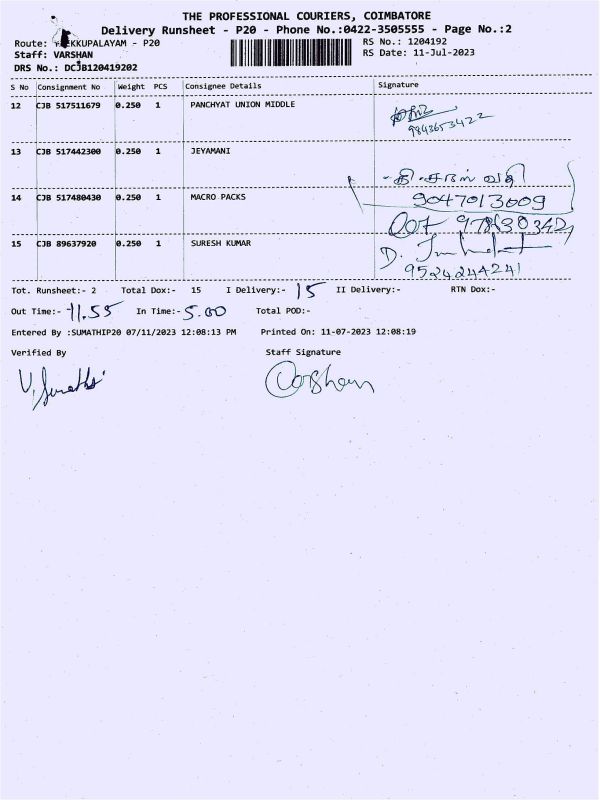 THE PROFESSIONAL COURIERS, COIMBATORE
Delivery Runsheet - P20 - Phone No.:0422-3505555 - Page No.:2
Route: EKKUPALAYAM - P20
RS No.: 1204192
Staff: VARSHAN
RS Date: 11-Jul-2023
DRS No.: DCJB120419202
S No Consignment No Weight PCS Consignee Details Signature
12 CJB 517511679 0.250 1 PANCHYAT UNION MIDDLE
9843653422
13 CJB 517442300 0.250 1 JEYAMANI
14 CJB 517480430 0.250 1 MACRO PACKS
9047013009
15 CJB 89637920 0.250 1 SURESH KUMAR
9524244241
Tot. Runsheet:- 2 Total Dox:- 15 I Delivery:- 15 II Delivery:- RTN Dox:-
Out Time:- 11.55 In Time:- 5.00 Total POD:-
Entered By :SUMATHIP20 07/11/2023 12:08:13 PM Printed On: 11-07-2023 12:08:19
Verified By Staff Signature